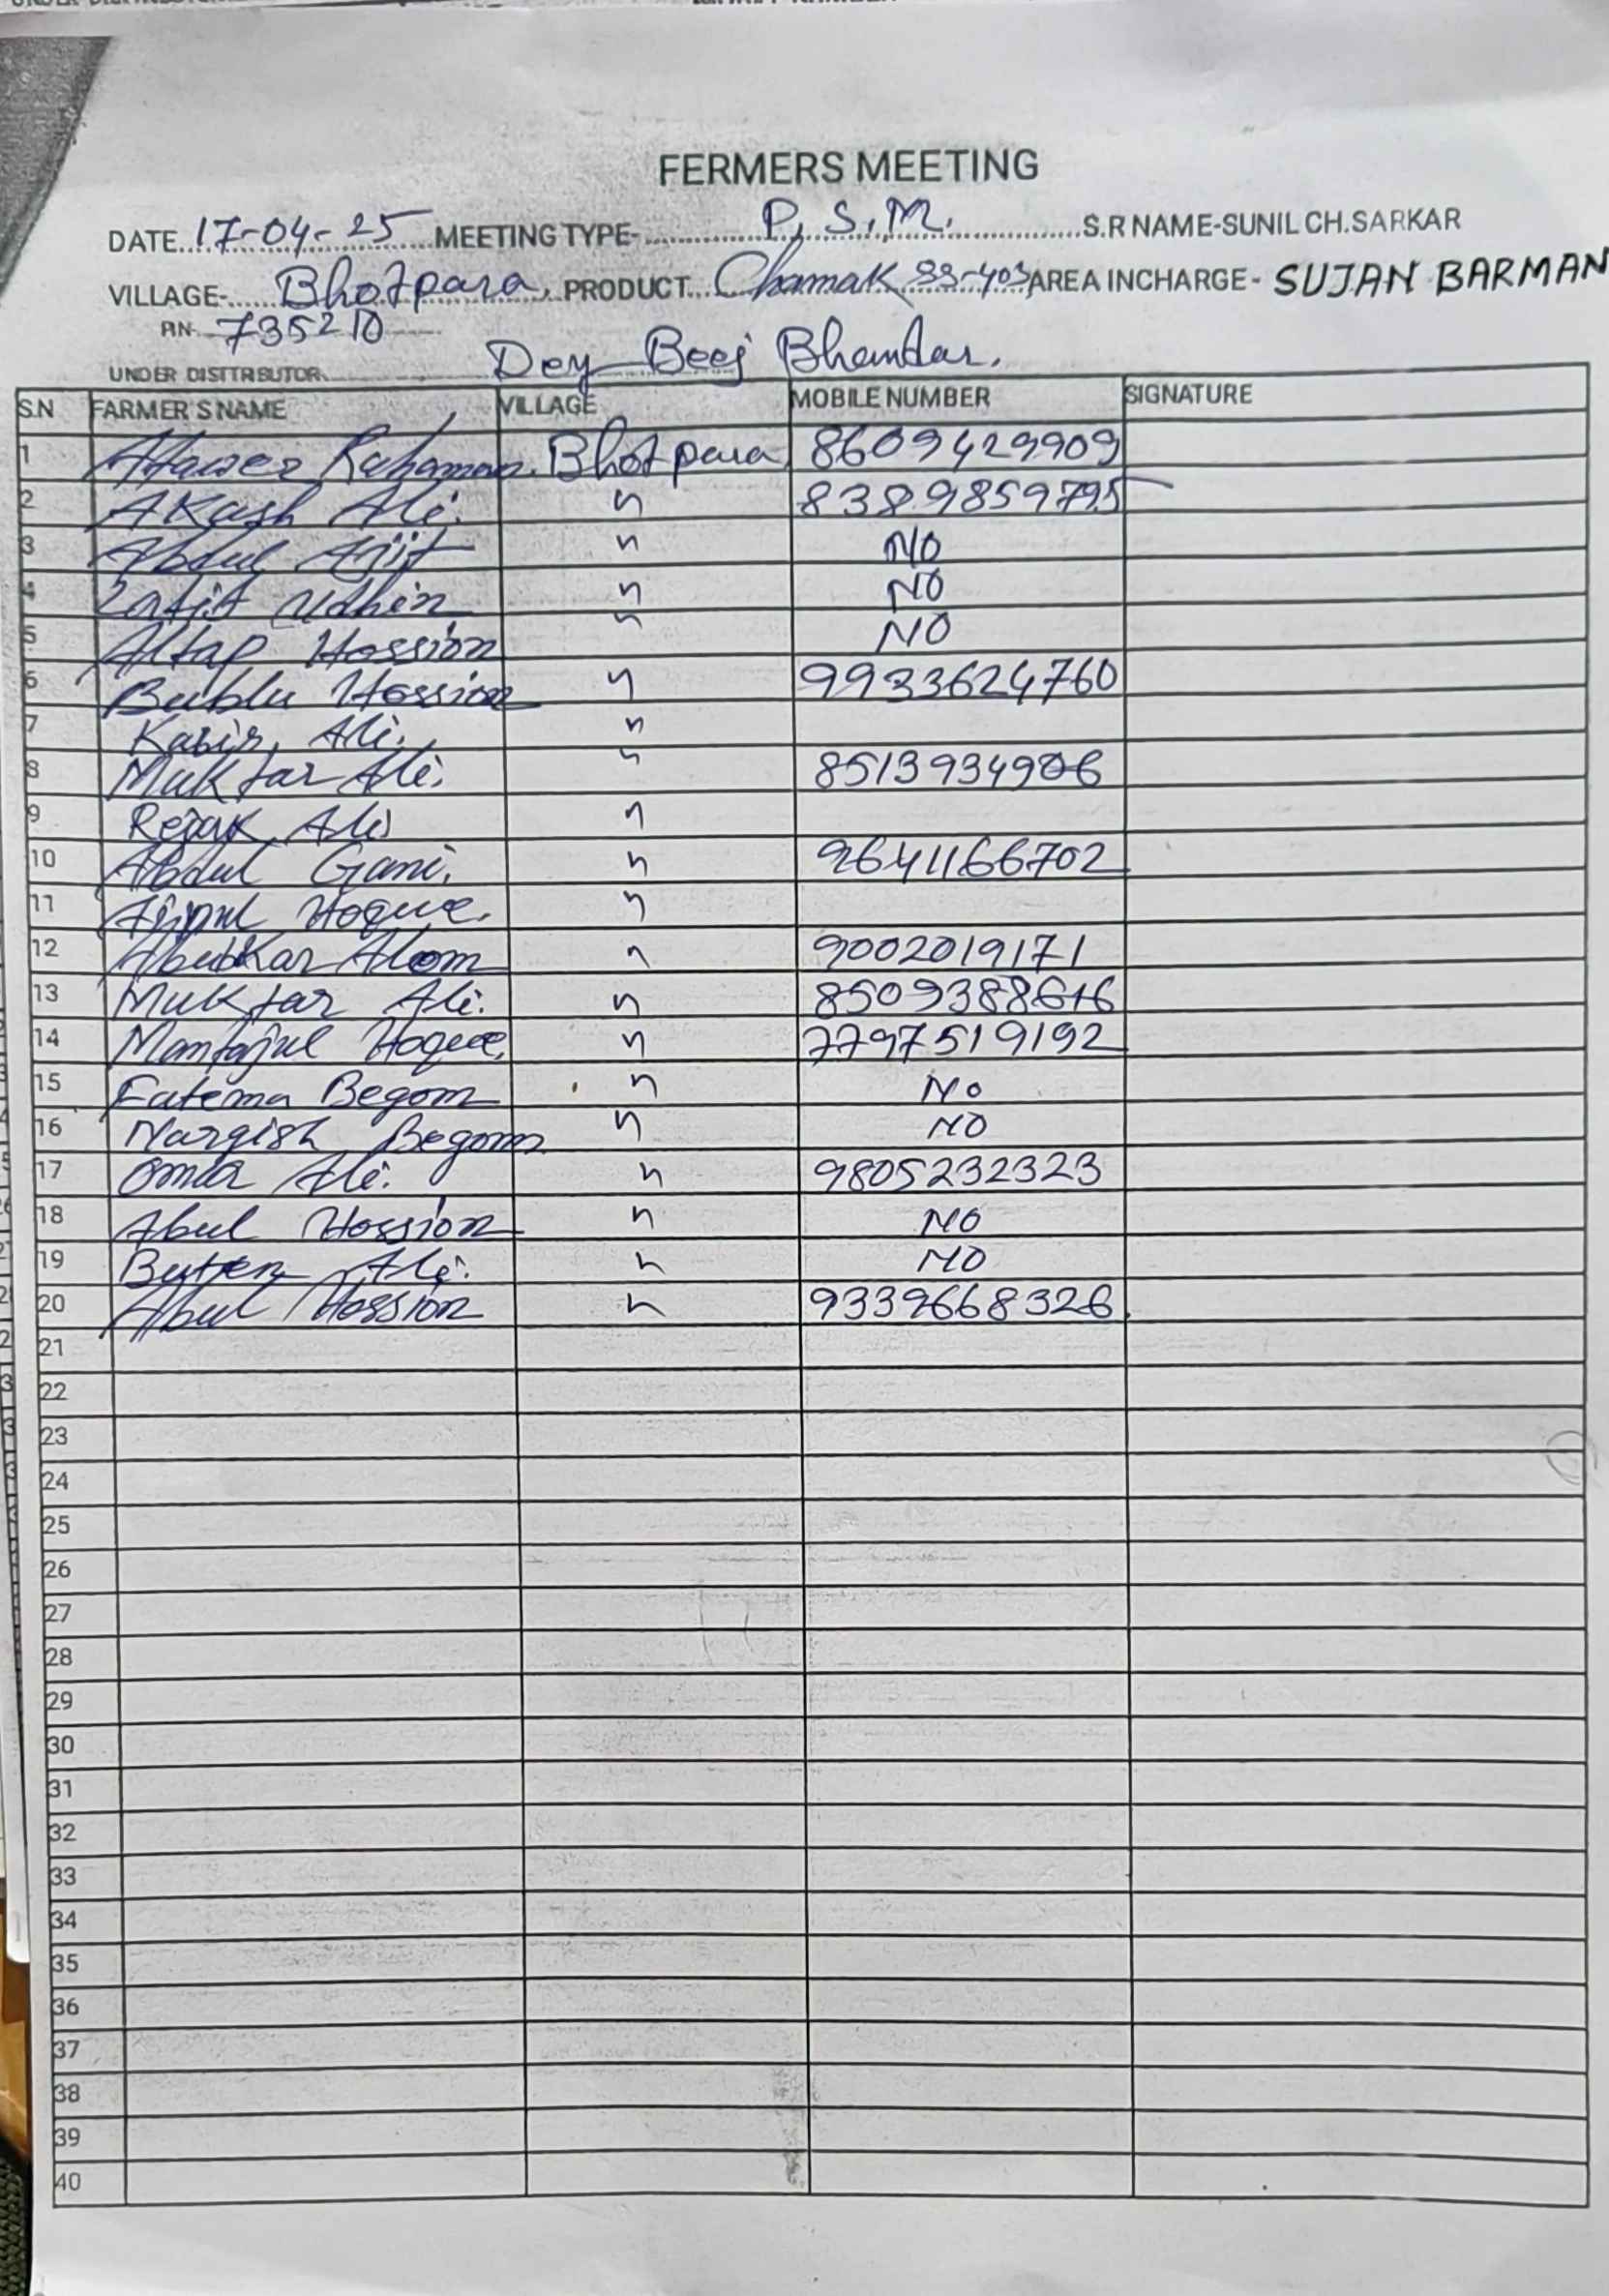 FERMERS MEETING
DATE..17-04-25.....MEETING TYPE-..............P.S.M...............S.R NAME-SUNIL CH.SARKAR
VILLAGE-.....Bhotpara, PRODUCT...Chamak SS-403 AREA INCHARGE- SUJAN BARMAN
PIN- 735210
UNDER DISTTRBUTOR............Dey Beej Bhandar.
S.N FARMER S NAME VILLAGE MOBILE NUMBER SIGNATURE
1 Rahaman. Bhotpara 8609429909
2 AKash Ali. " 8389859795
3 Abdul Ajit " NO
4 Udhin " NO
5 Altap Hossion " NO
6 Bublu Hossion " 9933624760
7 Kabir, Ali. "
8 Muktar Ali. " 8513934906
9 Rejak Ali "
10 Abdul Gani. " 9641166702
11 Hoque. "
12 Abubkar Alom " 9002019171
13 Muktar Ali. " 8509388616
14 Mantajul Hoque. " 7797519192
15 Fatema Begom " No
16 Nargish Begom " NO
17 Omar Ali. " 9805232323
18 Abul Hossion " NO
19 Ali. " NO
20 Abul Hossion " 9339668326.
21
22
23
24
25
26
27
28
29
30
31
32
33
34
35
36
37
38
39
40